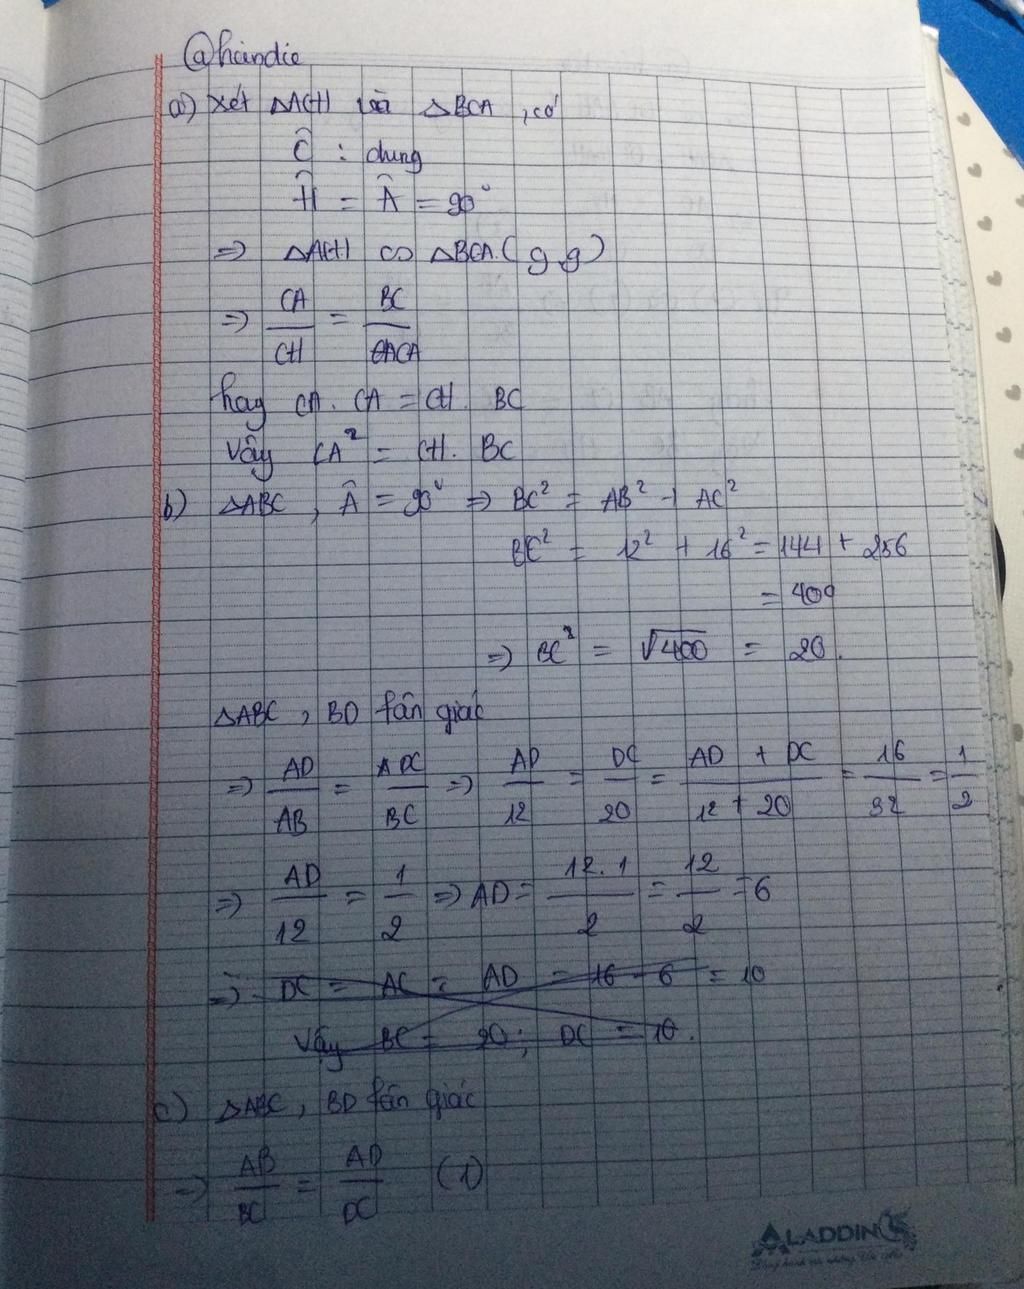 @handie
a) Xét ΔACH và ΔBCA, có
Ĉ : chung
Ĥ = Â = 90°
=> ΔACH ∽ ΔBCA (g.g)
=> CA/CH = BC/CA
hay CA. CA = CH. BC
Vậy CA² = CH. BC
b) ΔABC, Â = 90° => BC² = AB² + AC²
BC² = 12² + 16² = 144 + 256
= 400
=> BC² = √400 = 20.
ΔABC, BD fân giác
=> AD/AB = DC/BC => AD/12 = DC/20 = AD + DC/12 + 20 = 16/32 = 1/2
=> AD/12 = 1/2 => AD = 12.1/2 = 12/2 = 6
=> DC = AC = AD = 16 - 6 = 10
Vậy BC = 20; DC = 10.
c) ΔABC, BD fân giác
=> AB/BC = AD/DC (1)
ALADDIN